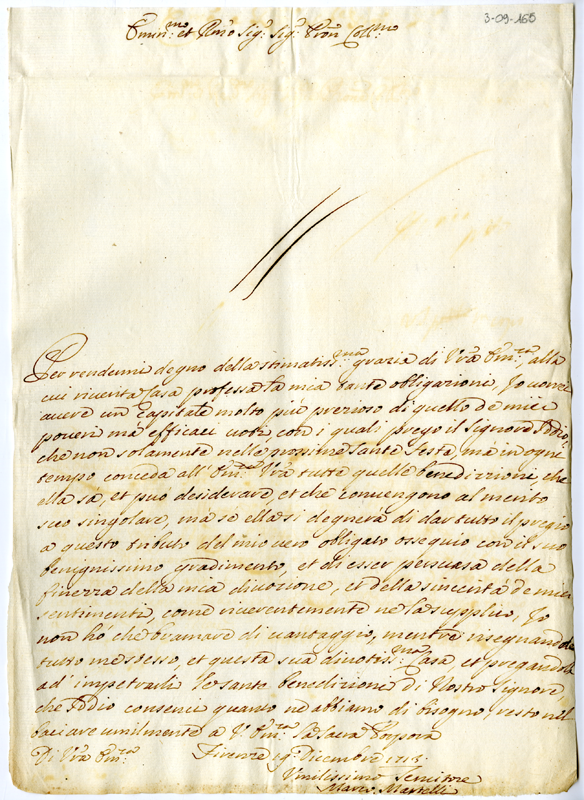 3-09-165
Emin:mo et Rmo Sig: Sig: Pron Coll:mo
Per rendermi degno della stimatiss:ma grazia di Vra Em:za alla
cui riverita Casa professa la mia tante obligazioni, Io vorrei
avere un Capitale molto più prezioso di quello de miei
poveri mà efficaci voti, con i quali prego il Signore Iddio,
che non solamente nelle prossime Sante Feste, mà in ogni
tempo conceda all' Em:za Vra tutte quelle benedizzioni, che
ella sà, et può desiderare, et che convengono al merito
suo singolare, mà se ella si degnerà di dar tutto il pregio
a questo tributo del mio vero obligato ossequio con il suo
benignissimo gradimento, et di esser persuasa della
finezza della mia divozione, et della sincerità de miei
sentimenti, come riverentemente ne la supplico, Io
non hò che bramare di vantaggio, mentre rasegnandole
tutto me stesso, et questa sua divotiss:ma Casa et pregandola
ad' impetrarli le sante benedizione di Nostro Signore
che Iddio conservi quanto ne abbiamo di bisogno, resto nel
baciare umilmente a V: Em:za la sacra Porpora
Di Vra Em:za Firenze 19 Dicembre 1713
Vmilissimo Servitore
Marco Martelli